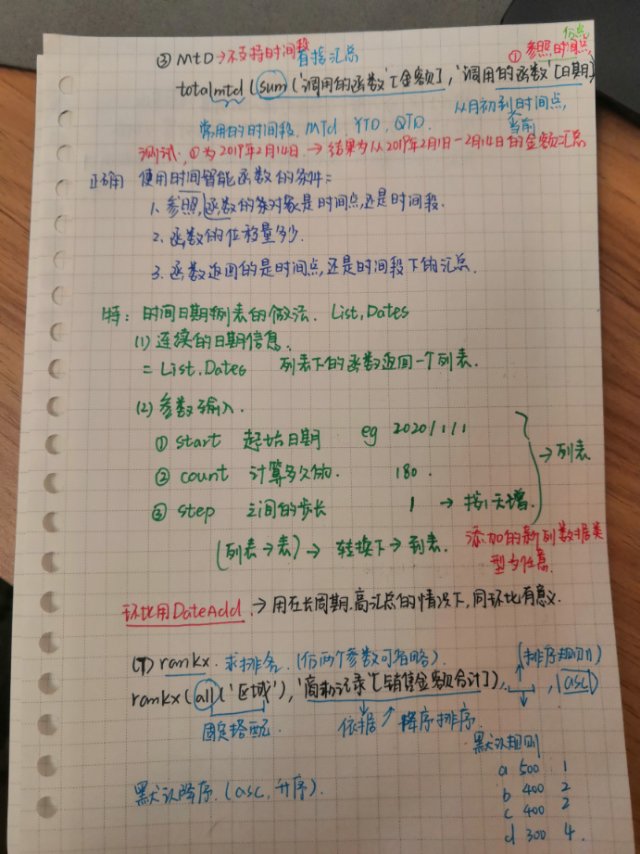 ③ MtD → 不支持时间段
直接汇总
① 参照时间点
totalmtd (sum('调用的函数'[金额], '调用的函数'[日期]
从月初到时间点,
当前
常用的时间段. Mtd. YTD. QTD.
测试: ①为2019年2月14日. → 结果为从2019年2月1日-2月14日的金额汇总
使用时间智能函数的条件:
1. 参照, 函数的象对象是时间点, 还是时间段.
2. 函数的位移量多少.
3. 函数返回的是时间点, 还是时间段下的汇总.
特: 时间日期列表的做法. List.Dates
(1) 连续的日期信息.
= List.Dates 列表下的函数返回一个列表.
(2) 参数输入.
① start 起始日期 eg 2020/1/1
② count 计算多久的. 180.
→ 列表
③ step 之间的步长 1 → 按1天增.
(列表→表) → 转换下 → 到表.
添加的新列数据类
型为任意.
环比用DateAdd → 用在长周期.高汇总的情况下, 同环比有意义.
(7) rankx. 求排名. (后两个参数可省略).
(排序规则)
rankx(all('区域'), '商品记录'[销售金额合计]), , (asc)
固定搭配 依据 降序排序.
默认规则
a 500 1
默认降序. (asc, 升序).
b 400 2
c 400 2
d 300 4.